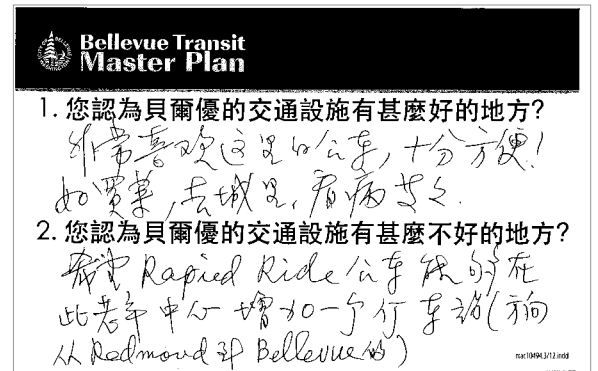 Bellevue Transit
Master Plan
1. 您認為貝爾優的交通設施有甚麼好的地方?
非常喜欢这里的公车,十分方便!
如買菜,去城里,看病等々.
2. 您認為貝爾優的交通設施有甚麼不好的地方?
希望 Rapied Ride 公车能够在
此老年中心增加一个行车站(方向
从 Redmond 到 Bellevue 的)
mac10494.3/12.indd